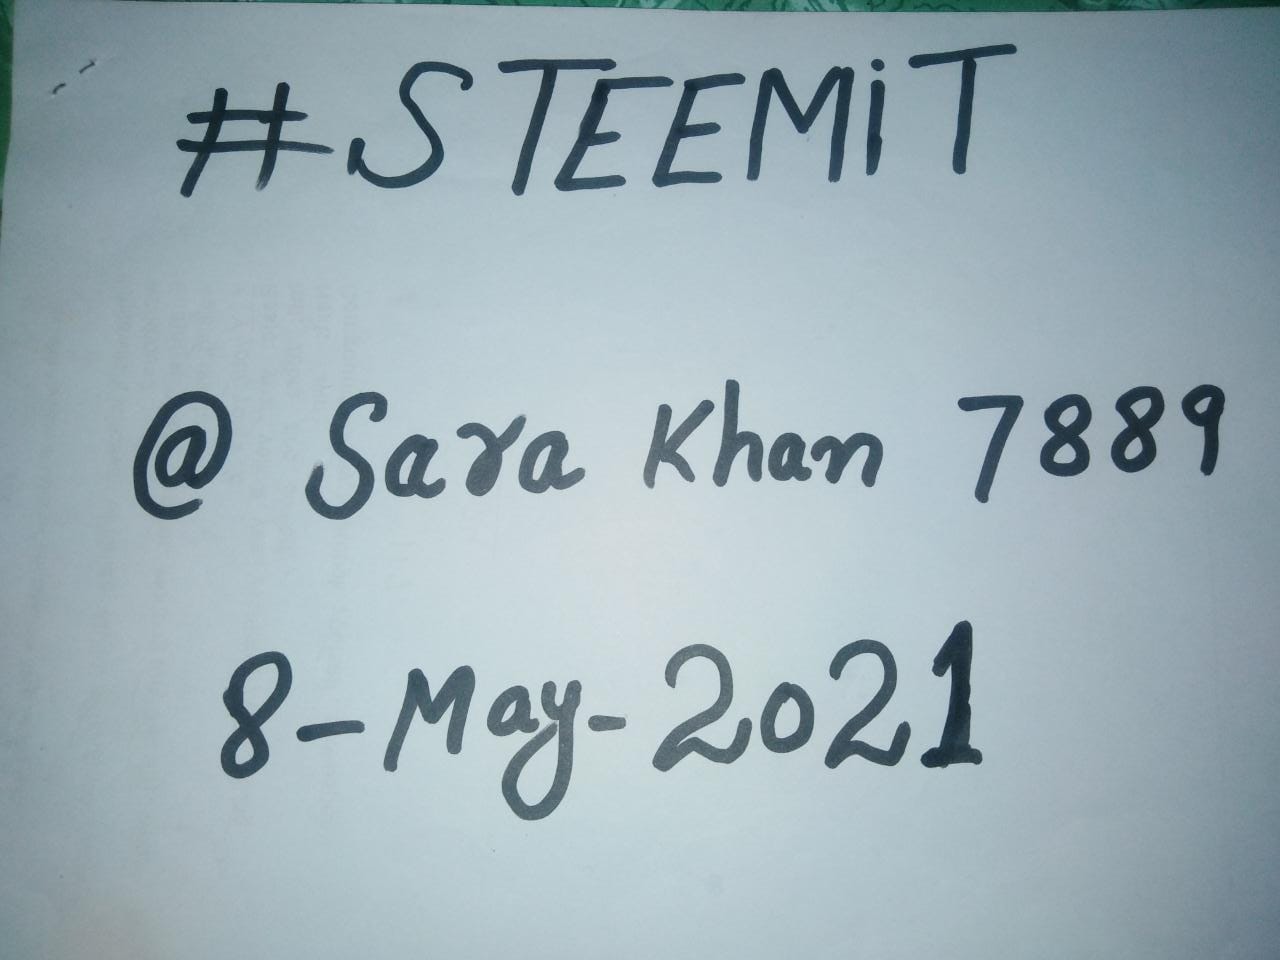 #STEEMiT
@ Sara Khan 7889
8-May-2021